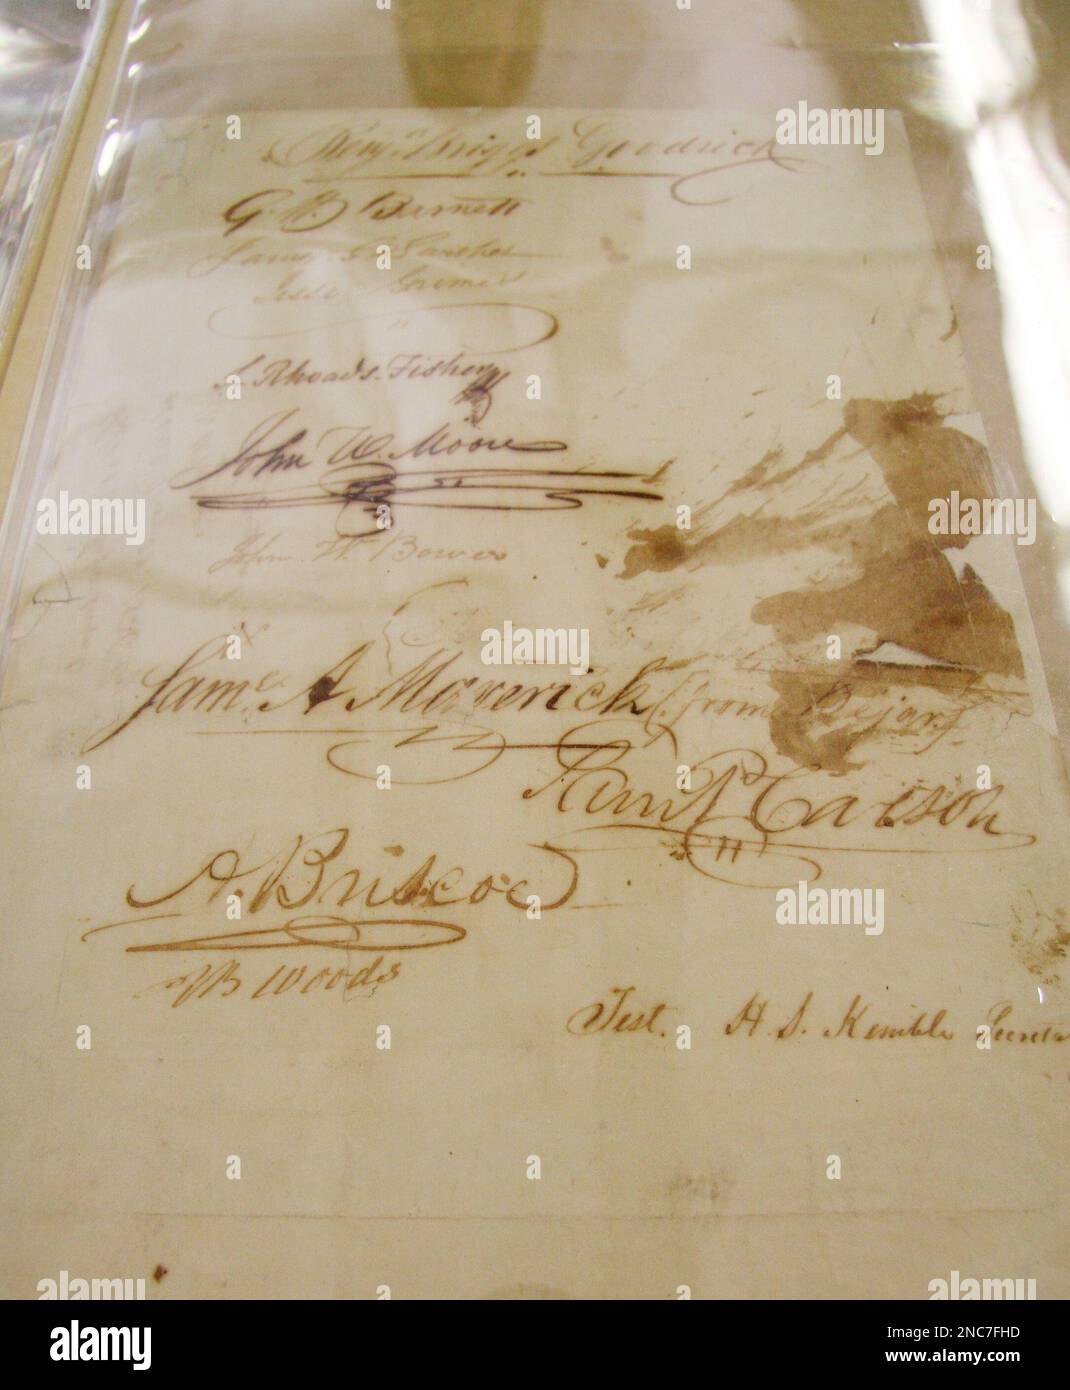 Benj. Briggs Goodrich
G. W. Barnett
James G. Swisher
Jesse Grimes
S. Rhoads Fisher
John W. Moore
John W. Bower
Saml A Maverick (from Bejar)
Sam P Carson
A. Briscoe
JB Woods
Test. H. S. Kemble Secreta
a alamy a alamy a
alamy
a alamy
Image ID: 2NC7FHD
www.alamy.com